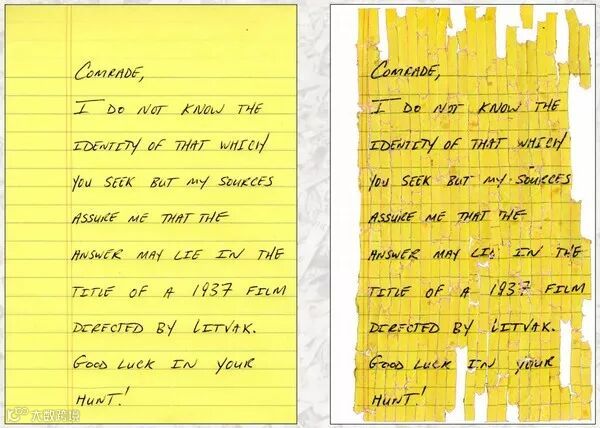 COMRADE,
I DO NOT KNOW THE
IDENTITY OF THAT WHICH
YOU SEEK BUT MY SOURCES
ASSURE ME THAT THE
ANSWER MAY LIE IN THE
TITLE OF A 1937 FILM
DIRECTED BY LITVAK.
GOOD LUCK IN YOUR
HUNT!
COMRADE,
I DO NOT KNOW THE
IDENTITY OF THAT WHICH
YOU SEEK BUT MY SOURCES
ASSURE ME THAT THE
ANSWER MAY LIE IN THE
TITLE OF A 1937 FILM
DIRECTED BY LITVAK.
GOOD LUCK IN YOUR
HUNT!
大数跨境